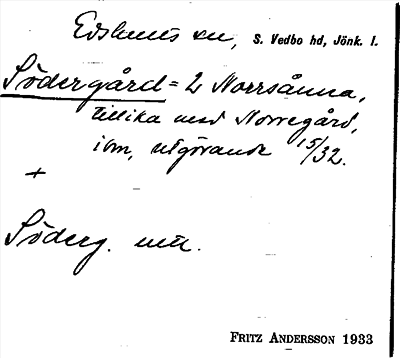 Edshults sn, S. Vedbo hd, Jönk. l.
Södergård = 2 Norrsånna,
tillika med Norregård,
i sm, utgörande 15/32.
+
Söderg. mtl.
FRITZ ANDERSSON 1933